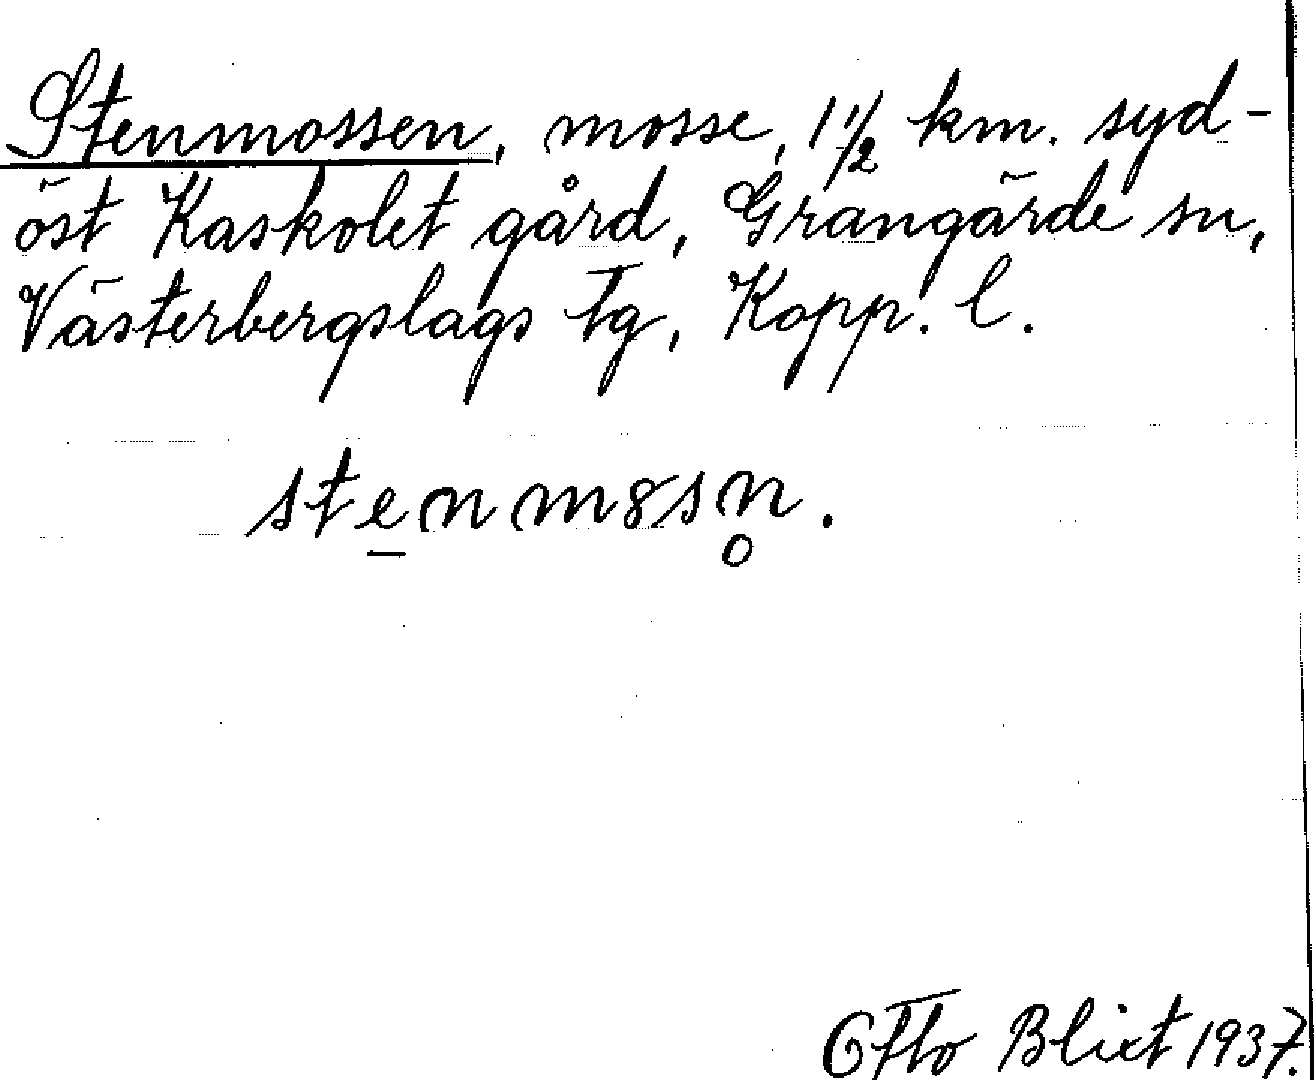 Stenmossen, mosse, 1 1/2 km. syd-
öst Kaskolet gård, Grangärde sn,
Västerbergslags tg, Kopp. l.
ste̲nm8sn̥.
Otto Blixt 1937.